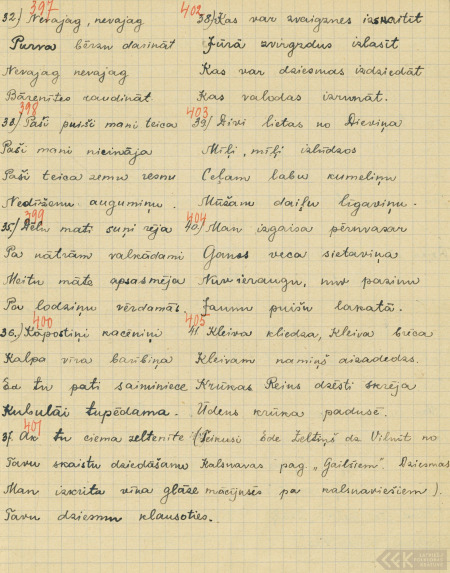 397
32) Nevajag, nevajag
Purva bērzu darināt
Nevajag nevajag
Bārenītes raudināt
398
33) Paši puiši mani teica
Paši mani nicināja
Paši teica zemu resnu
Nedižemu augumiņu.
399
35) Dēlu māti suņi rēja
Pa nātrām valkādami
Meitu māte apsasmēja
Pa lodziņu vērdamās
400
36.) Kāpostiņi kacēniņi
Kalpa vīra barībiņa
Ēd tu pati saiminiece
Kubulāi tupēdama.
401
37. Ak tu ciema zeltenīte
Tavu skaistu dziedāšanu
Man izkrita vīna glāze
Tavu dziesmu klausoties.
402
38) Kas var zvaigznes izskaitīt
Jūrā zvirgzdus izlasīt
Kas var dziesmas izdziedāt
Kas valodas izrunāt.
403
39) Divi lietas no Dieviņa
Mīļi, mīļi izlūdzos
Ceļam labu kumeliņu
Mūžam daiļu līgaviņu.
404
40) Man izgaisa pērnvasar
Ganos veca sietaviņa
Nuv ieraugu, nuv pazinu
Jaunu puišu lakatā.
405
41 Kleiva kliedza, Kleiva brēca
Kleivam namiņš aizadedzs.
Krūkas Reins dzēsti skrēja
Ūdens krūka padusē.
(Teikusi Ede Zeltiņš dz Vilnīt no
Kalsnavas pag. „Gailšiem". Dziesmas
mācījusēs pa kalsnaviešiem).